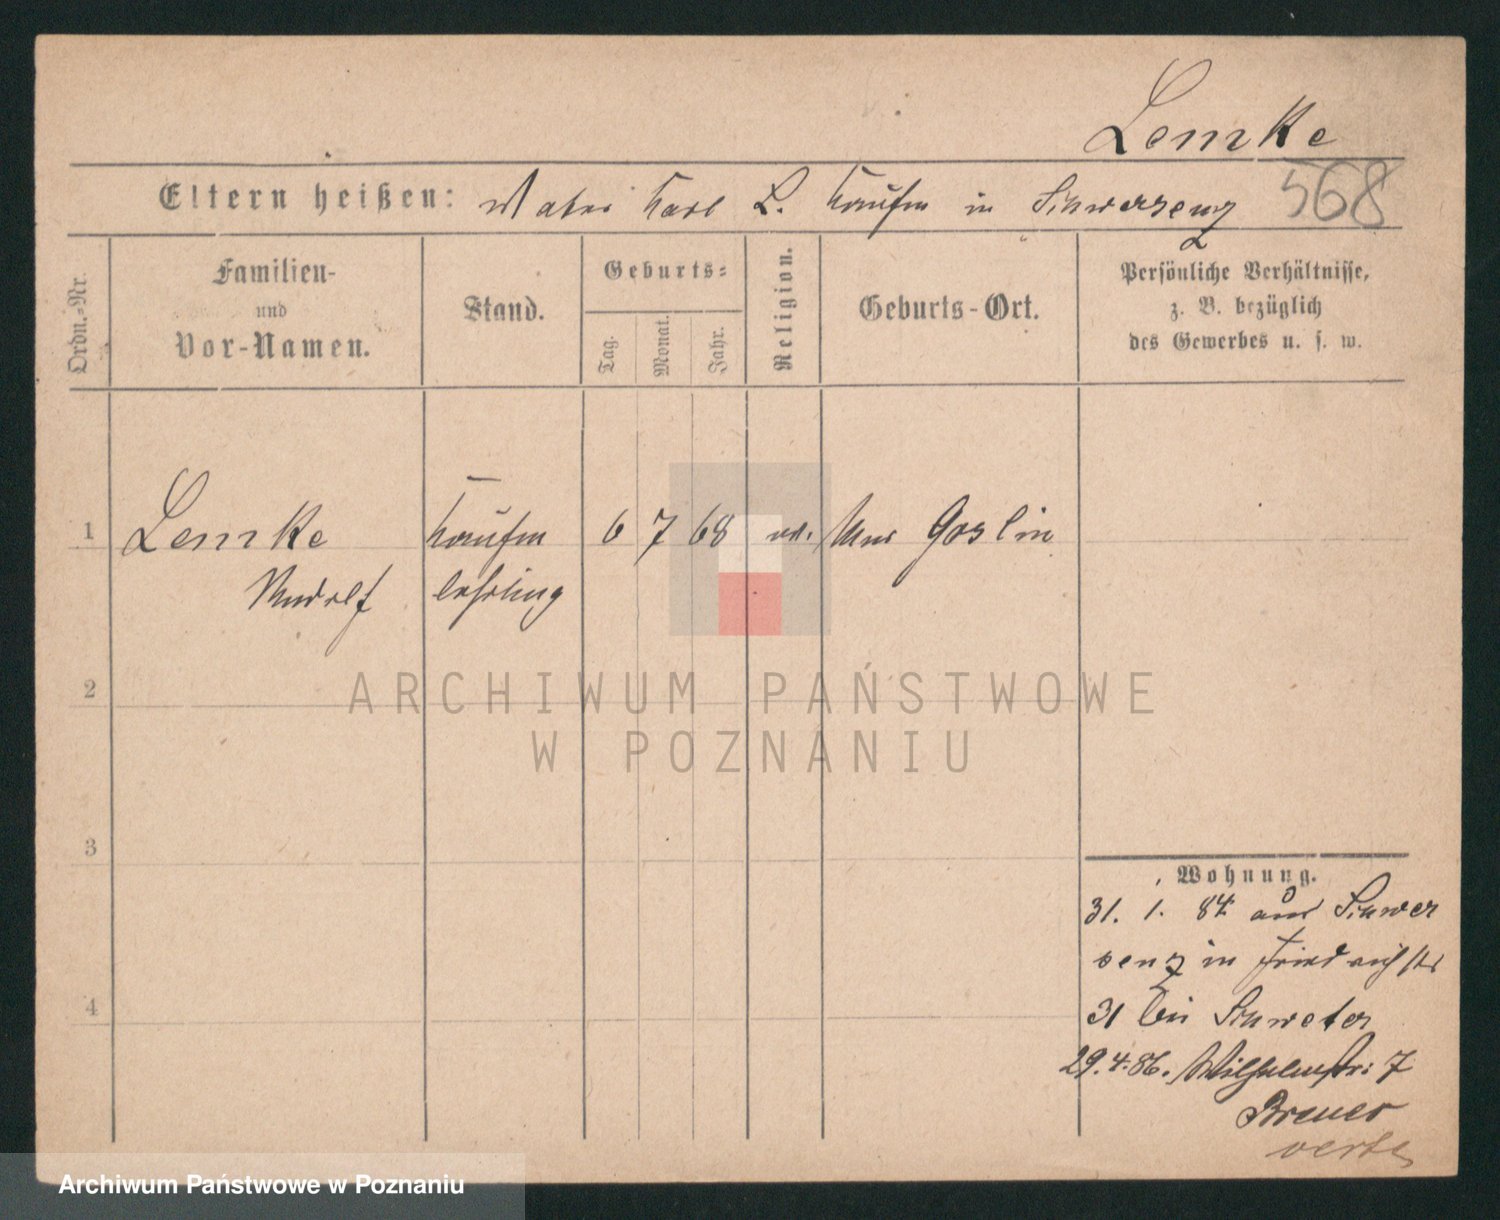 Lemke
568
Eltern heißen: Vater Karl L. Kaufm in Schwersenz
Ordn.-Nr.
Familien-
und
Vor-Namen.
Stand.
Geburts-
Tag.
Monat.
Jahr.
Religion.
Geburts-Ort.
Persönliche Verhältnisse,
z. B. bezüglich
des Gewerbes u. s. w.
1 Lemke Kaufm 6 7 68 ev. Mur Goslin
Rudolf lehrling
2
3
4
Wohnung.
31. 1. 84 aus Schwer
senz in Friedrichstr
31 bei
29.4.86. Wilhelmstr: 7
verte
ARCHIWUM PAŃSTWOWE
W POZNANIU
Archiwum Państwowe w Poznaniu